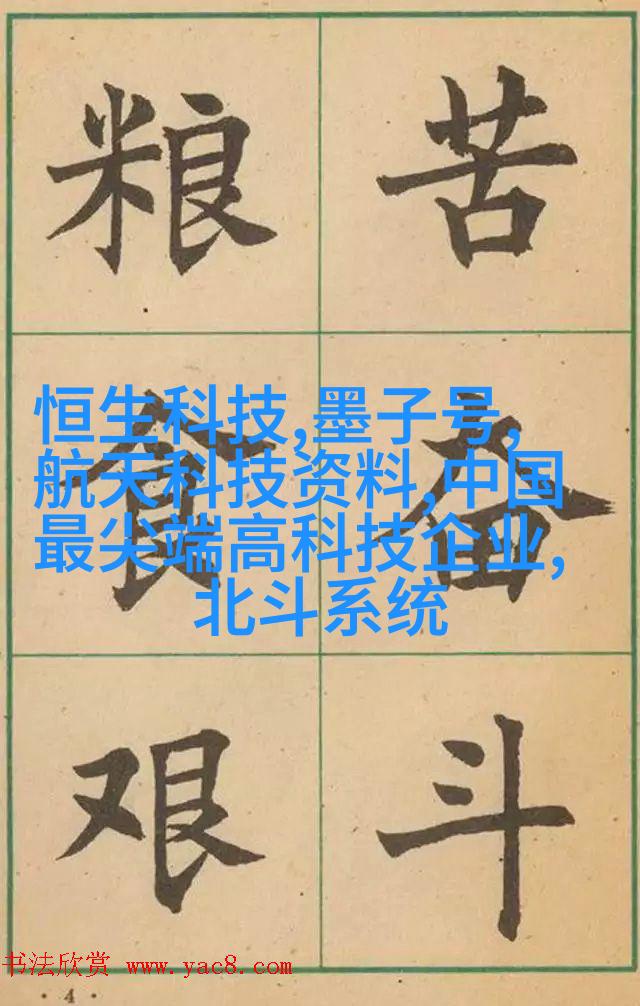 粮 苦
恒生科技,墨子号,
航天科技资料,中国
最尖端高科技企业,
北斗系统
食 奋
艰 斗
书法欣赏 www.yac8.com
· 4 ·